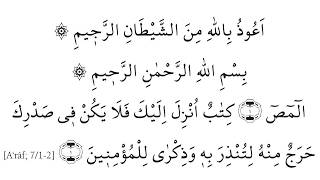 اَعُوذُ بِاللّٰهِ مِنَ الشَّيْطَانِ الرَّجٖيمِ ۞
بِسْمِ اللّٰهِ الرَّحْمٰنِ الرَّحٖيمِ ۞
الٓمٓصٓ ۞ كِتَابٌ اُنْزِلَ اِلَيْكَ فَلَا يَكُنْ فٖى صَدْرِكَ
حَرَجٌ مِنْهُ لِتُنْذِرَ بِهٖ وَذِكْرٰى لِلْمُؤْمِنٖينَ ۞ [A'râf, 7/1-2]